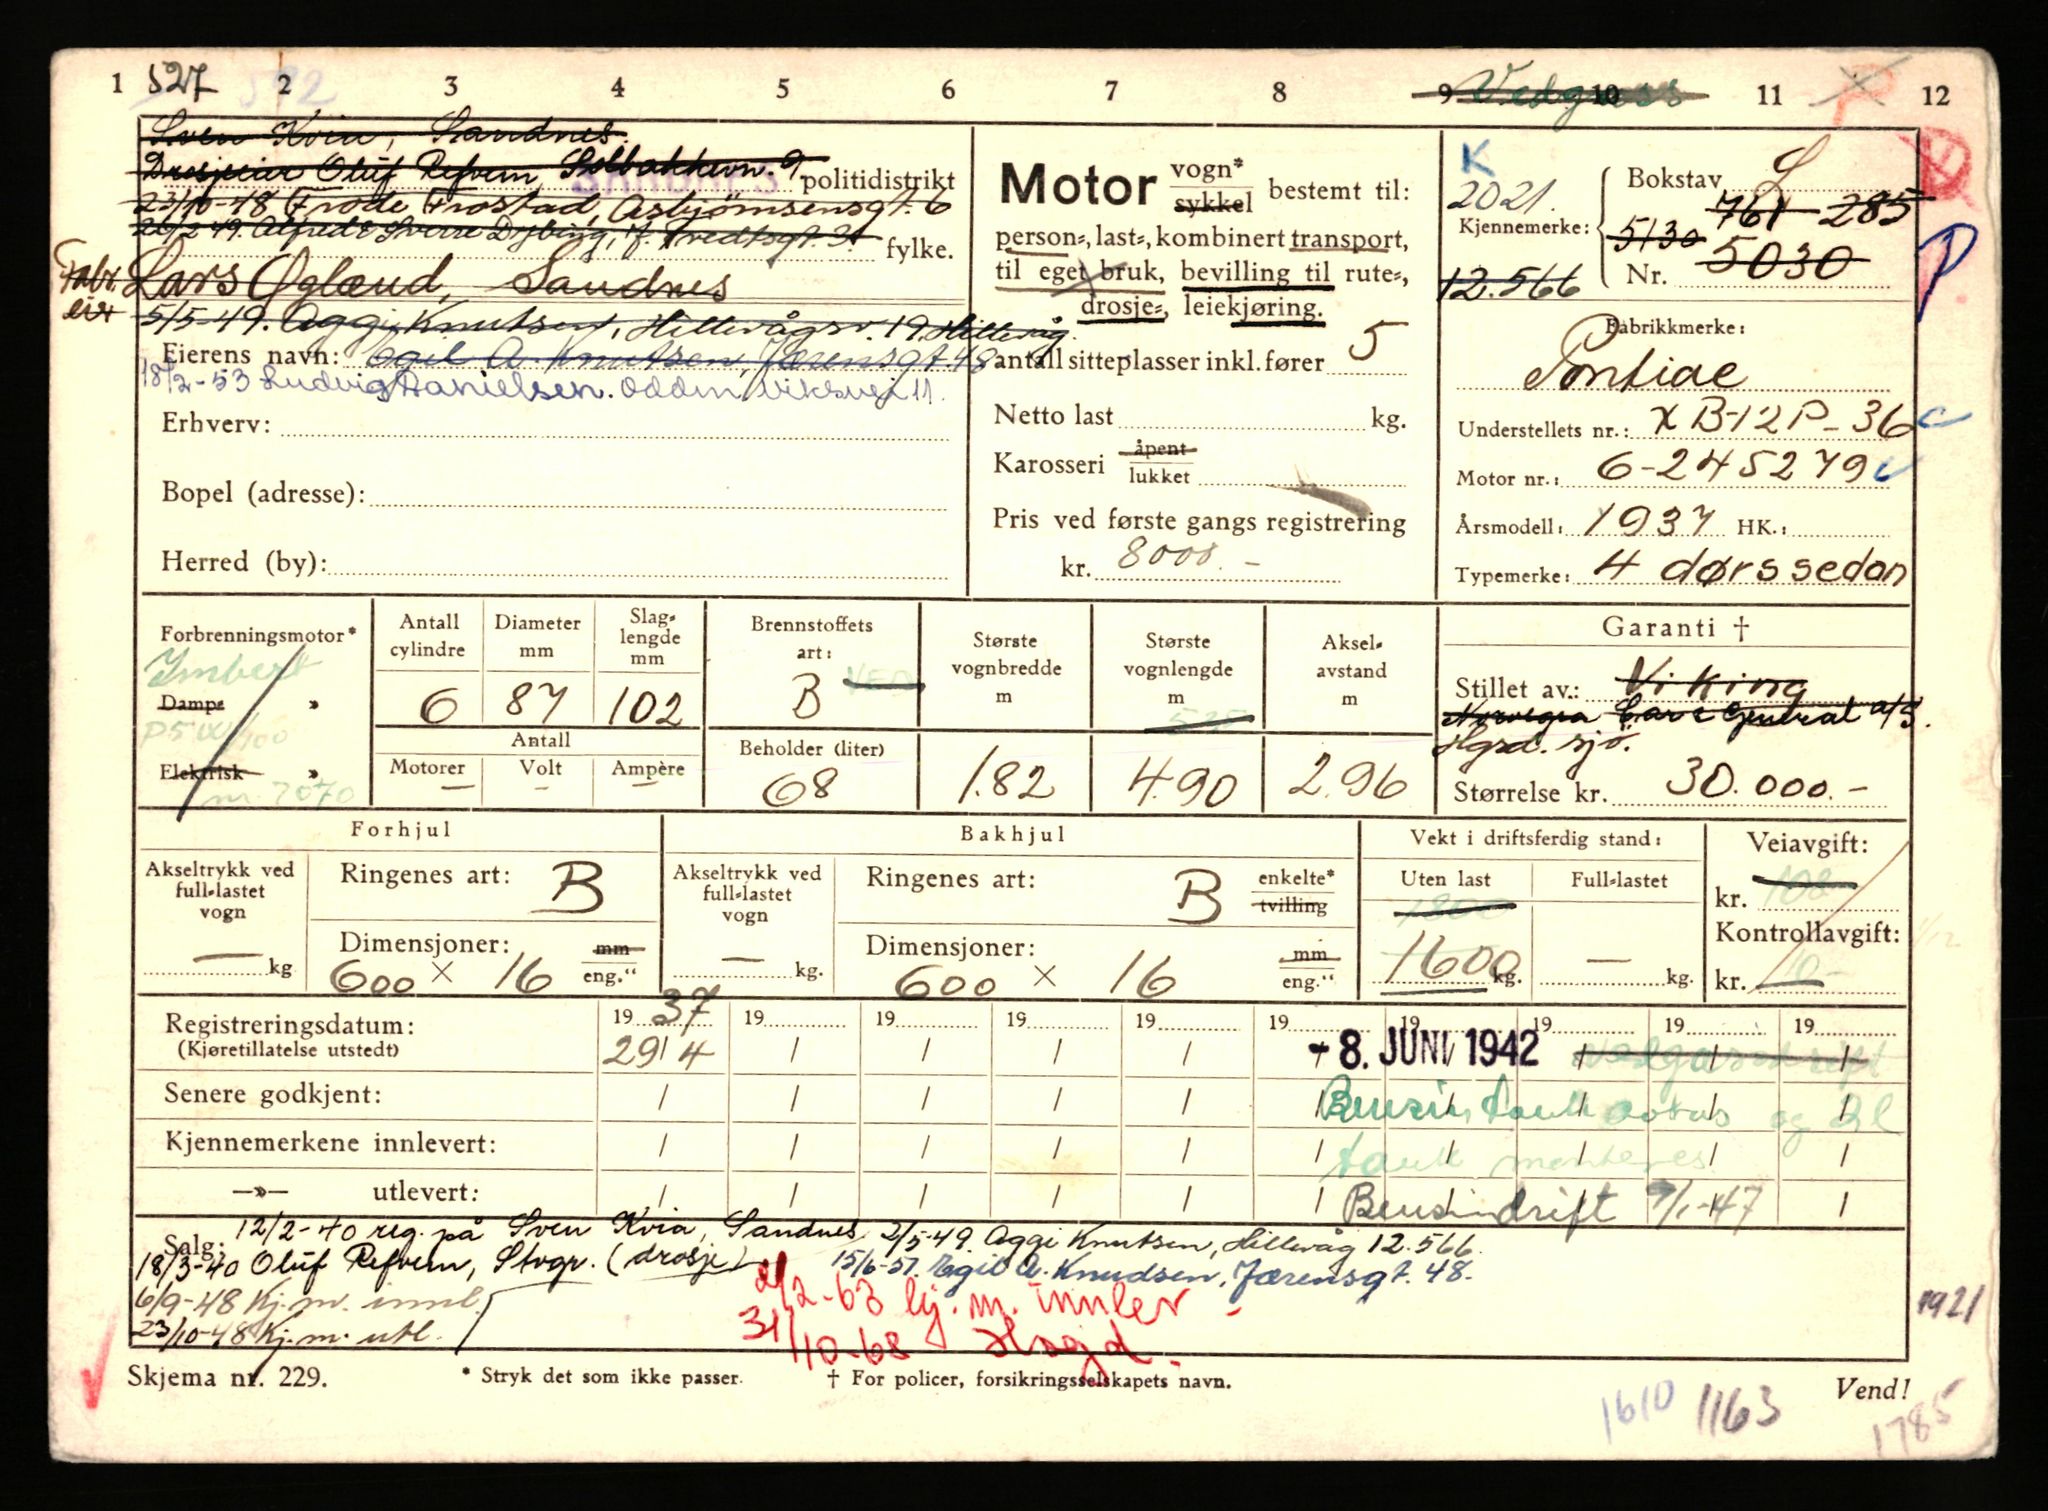 1 527 2 572 3 4 5 6 7 8 9 Vedgass 10 11 12
Sven Kvia, Sandnes.
Drosjeeier Oluf Refvem Solbakkevn. 9 politidistrikt
SANDNES
23/10-48 Frode Frostad, Asbjørnsensgt. 6
26/2-49. Alfred & Sverre Dybing, J. Tvedtsgt. 31 fylke.
Fabr. Lars Øglænd, Sandnes
eier
5/5-49. Aggi Knutsen, Hillevågsv. 19, Hillevåg.
Eierens navn: Egil A. Knutsen, Jærensgt. 48
18/2-53 Ludvig Danielsen. Oddm. Viksvei 11.
Erhverv:
Bopel (adresse):
Herred (by):
Motor vogn* sykkel bestemt til:
person-, last-, kombinert transport,
til eget bruk, bevilling til rute-,
drosje-, leiekjøring.
antall sitteplasser inkl. fører 5
Netto last kg.
Karosseri åpent lukket
Pris ved første gangs registrering
kr. 8000.-
K
2021.
Kjennemerke:
5130
12.566
Bokstav L
761 285
Nr. 5030
P
Fabrikkmerke:
Pontiac
Understellets nr.: X B-12P-36
Motor nr.: 6-245279
Årsmodell: 1937 HK.:
Typemerke: 4 dørs sedan
Forbrenningsmotor*
Imbert
Damp- »
Elektrisk »
nr. 7070
Antall cylindre 6
Diameter mm 87
Slag-lengde mm 102
Antall
Motorer — Volt — Ampère —
Brennstoffets art: VED
B
Beholder (liter)
68
Største vognbredde m
1.82
Største vognlengde m
525
4.90
Aksel-avstand m
2.96
Garanti †
Stillet av: Viking
Norvegia Car & General a/S.
Hgsd. sjø.
Størrelse kr. 30.000.-
Forhjul
Akseltrykk ved full-lastet vogn
— kg
Ringenes art: B
Dimensjoner: mm
600 × 16 eng."
Bakhjul
Akseltrykk ved full-lastet vogn
— kg.
Ringenes art: B enkelte* tvilling
Dimensjoner: mm
600 × 16 eng."
Vekt i driftsferdig stand:
Uten last Full-lastet
1800
1600 kg. — kg.
Veiavgift:
kr. 108
Kontrollavgift:
kr. 10-
1/12
Registreringsdatum: 19 37 19 19 19 19 19 19 19 19 19
(Kjøretillatelse utstedt) 29/4 - 8. JUNI 1942 Vedgassdrift
Senere godkjent: Bensintank og 2l
Kjennemerkene innlevert: tank monteres
—»— utlevert: Bensindrift 7/1-47
Salg: 12/2-40 reg. på Sven Kvia, Sandnes 2/5-49. Aggi Knutsen, Hillevåg 12.566.
18/3-40 Oluf Refvem, Stvgr. (drosje) 15/6-51. Egil A. Knudsen, Jærensgt. 48.
6/9-48 Kj.m. innl. 2/2-63 kj.m. innlev -
23/10-48 Kj.m. utl. 31/10-68 Hsgd -
1921
Skjema nr. 229. * Stryk det som ikke passer. † For policer, forsikringsselskapets navn. Vend!
1610 1163 1785